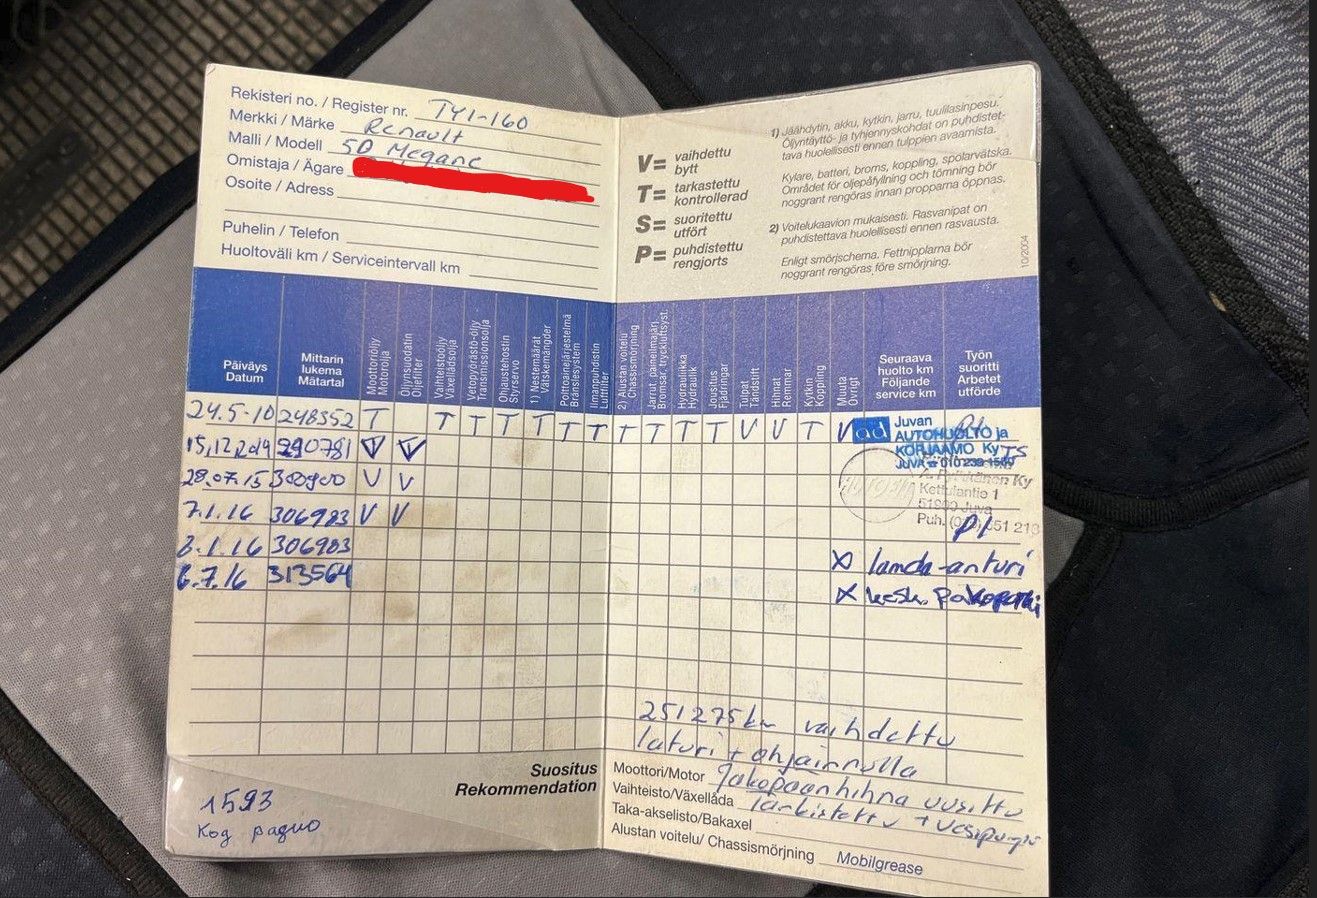 Rekisteri no. / Register nr. TYI-160
Merkki / Märke Renault
Malli / Modell 5D Megane
Omistaja / Ägare
Osoite / Adress
Puhelin / Telefon
Huoltoväli km / Serviceintervall km
V= vaihdettu
bytt
T= tarkastettu
kontrollerad
S= suoritettu
utfört
P= puhdistettu
rengjorts
1) Jäähdytin, akku, kytkin, jarru, tuulilasinpesu.
Öljyntäyttö- ja tyhjennyskohdat on puhdistet-
tava huolellisesti ennen tulppien avaamista.
Kylare, batteri, broms, koppling, spolarvätska.
Området för oljepåfyllning och tömning bör
noggrant rengöras innan propparna öppnas.
2) Voitelukaavion mukaisesti. Rasvanipat on
puhdistettava huolellisesti ennen rasvausta.
Enligt smörjschema. Fettnipplarna bör
noggrant rengöras före smörjning.
10/2004
Päiväys
Datum
Mittarin
lukema
Mätartal
Moottoriöljy
Motorolja
Öljynsuodatin
Oljefilter
Vaihteistoöljy
Växellådsolja
Vetopyörästö-öljy
Transmissionsolja
Ohjaustehostin
Styrservo
1) Nestemäärät
Vätskemängder
Polttoainejärjestelmä
Bränslesystem
Ilmanpuhdistin
Luftfilter
2) Alustan voitelu
Chassismörjning
Jarrut, paineilmajärj.
Bromsar, tryckluftsyst.
Hydrauliikka
Hydraulik
Jousitus
Fjädringar
Tulpat
Tändstift
Hihnat
Remmar
Kytkin
Koppling
Muuta
Övrigt
Seuraava
huolto km
Följande
service km
Työn
suoritti
Arbetet
utförde
24.5-10 248352 T T T T T T T T T T T V V T V
ad Juvan
AUTOHUOLTO ja
KORJAAMO Ky TS
JUVA ☎ 010 239 1589
15,12,2014 290781 V V
28.07.15 300900 V V
Kettulantie 1
51900 Juva
7.1.16 306983 V V
Puh. 051 210
PL
8.1.16 306983 X lamda-anturi
6.7.16 313564 X kesk. pakoputki
251275km vaihdettu
laturi + ohjainrulla
Suositus
Rekommendation
Moottori/Motor Jakopäänhihna uusittu
Vaihteisto/Växellåda tarkistettu + vesipumppu
Taka-akselisto/Bakaxel
Alustan voitelu/ Chassismörjning Mobilgrease
1593
Код радио